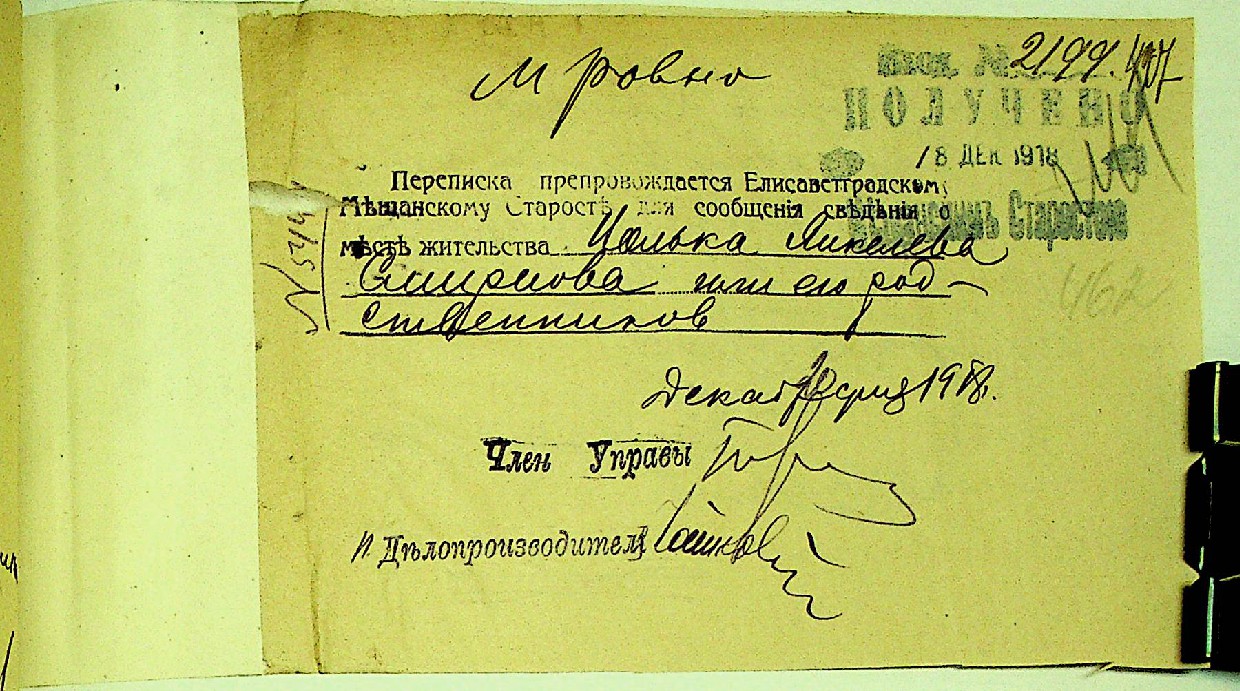 м Ровно
Вход. № 2199. 407
ПОЛУЧЕНО
18 ДЕК 1918
Мѣщанскимъ Старостою
Переписка препровождается Елисаветградскому
Мѣщанскому Старостѣ для сообщенія свѣдѣнія о
мѣстѣ жительства
Смирнова или его род-
ственников
Декабря 1918.
Член Управы
И. Дѣлопроизводителя